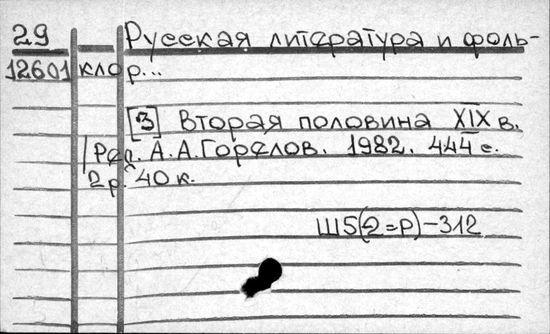 29 Русская литература и фоль-
12601 клор...
[3] Вторая половина XIX в.
/Ред. А.А.Горелов. 1982. 444 с.
2р. 40 к.
Ш5(2=Р)-312